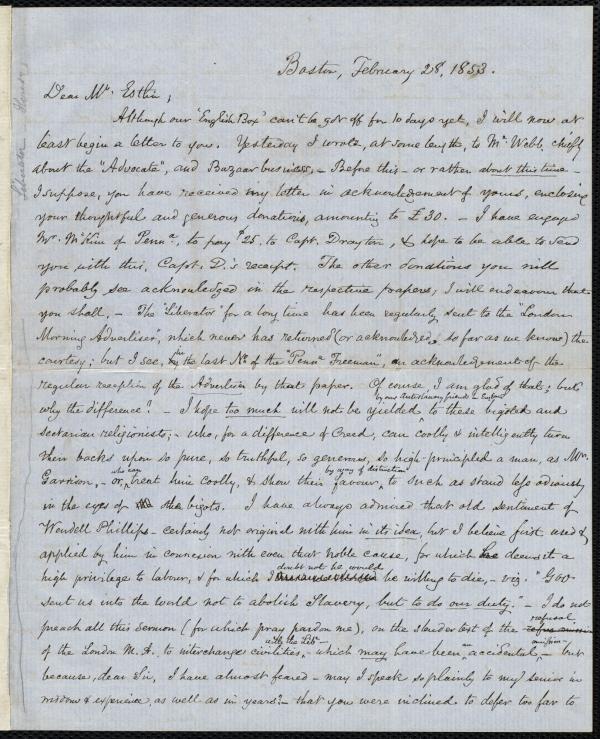 Boston, February 28, 1853.
Dear Mr. Estlin,
Although our "English Box" can't be got off for 10 days yet, I will now at
least begin a letter to you. Yesterday I wrote, at some length, to Mr. Webb, chiefly
about the "Advocate", and Bazaar business. - Before this - or rather about this time -
I suppose, you have received my letter in acknowledgement of yours, enclosing
your thoughtful and generous donations, amounting to £30. - I have engaged
Mr. McKim of Penna., to pay $25. to Capt. Drayton, & hope to be able to send
you with this, Capt. D.'s receipt. The other donations you will
probably see acknowledged in the respective papers; I will endeavour that
you shall. - The "Liberator" for a long time has been regularly sent to the "London
Morning Advertiser", which never has returned (or acknowledged, so far as we know) the
courtesy; but I see, in the last No. of the "Penna. Freeman", an acknowledgement of the
regular reception of the Advertiser by that paper. Of course, I am glad of that; but
by our Antislavery friends in England
why the difference? - I hope too much will not be yielded to these bigoted and
sectarian religionists, - who, for a difference of Creed, can coolly & intelligently turn
their backs upon so pure, so truthful, so generous, so high-principled a man, as Mr.
who can by way of distinction
Garrison, - or, treat him coolly, & show their favour to such as stand less odiously
in the eyes of the bigots. I have always admired that old sentiment of
Wendell Phillips - certainly not original with him in its idea, but I believe first used &
applied by him in connexion with even that noble cause, for which he deems it a
doubt not he would
high privilege to labour, & for which I be willing to die, - viz. "God
sent us into the world not to abolish Slavery, but to do our duty." - I do not
refusal
preach all this Sermon (for which pray pardon me), on the slender text of the
with the Libr.
of the London M. A. to interchange civilities, which may have been accidental, - but
because, dear Sir, I have almost feared - may I speak so plainly to my senior in
wisdom & experience, as well as in years? - that you were inclined to defer too far to